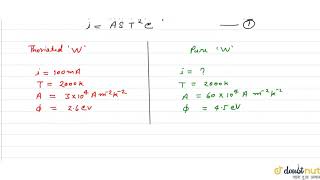 i = A S T² e ——— ①
Thoriated 'W'
Pure 'W'
i = 100mA
T = 2000k
A = 3×10⁴ A m⁻²k⁻²
ϕ = 2.6 eV
i = ?
T = 2000k
A = 60×10⁴ A m⁻²k⁻²
ϕ = 4.5 eV
doubtnut